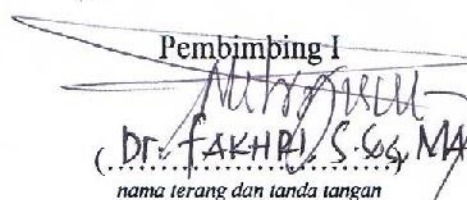 Pembimbing I
( Dr. FAKHRI, S.Sos, MA
nama terang dan tanda tangan